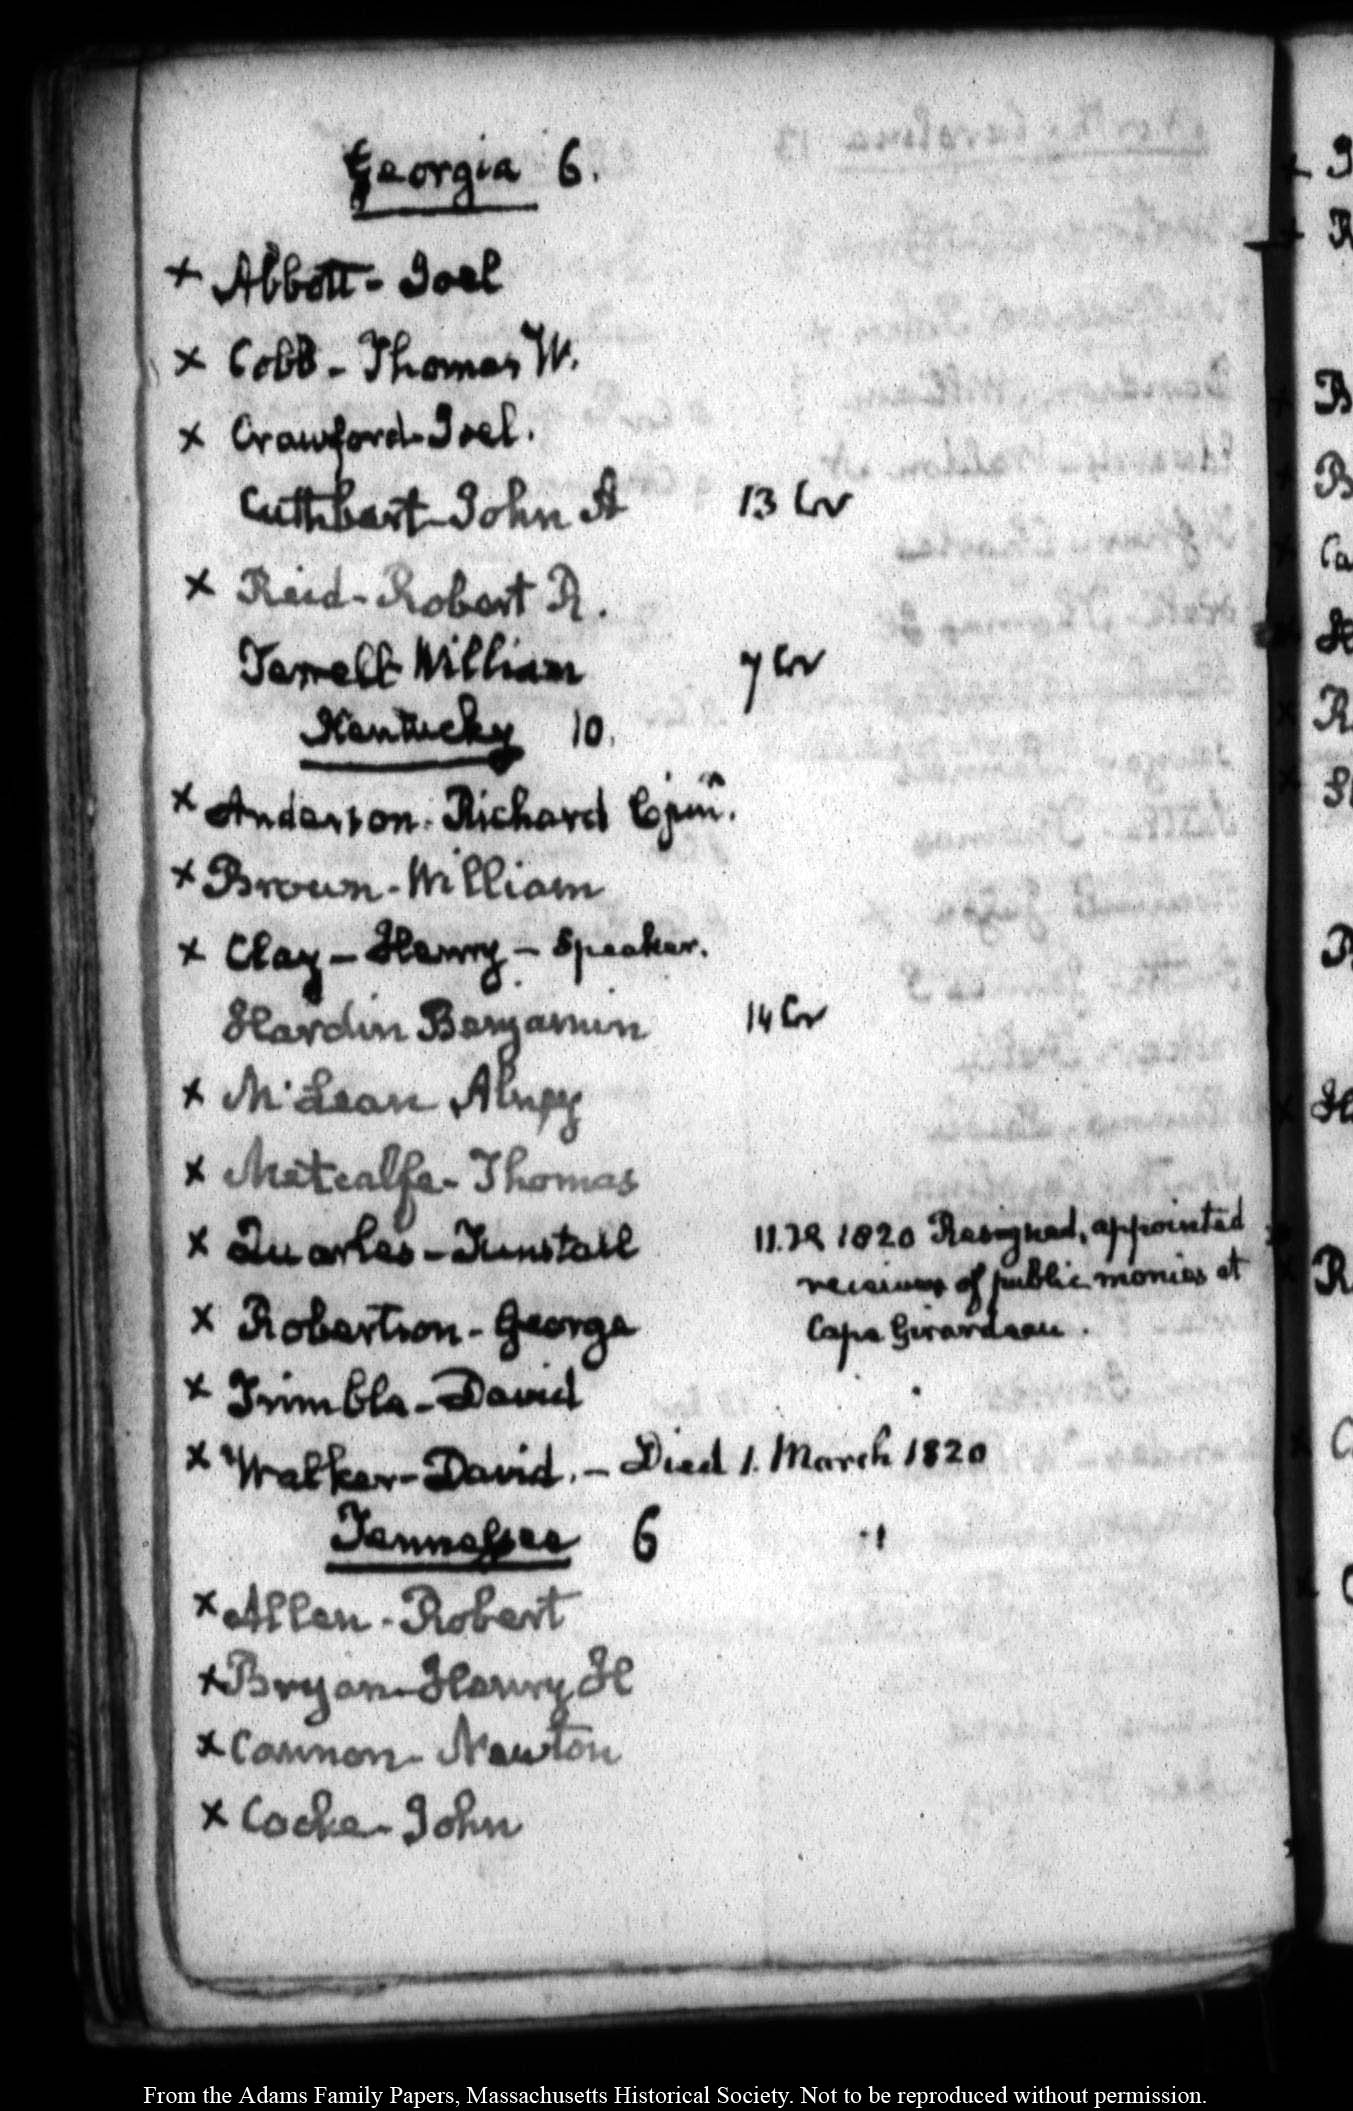 Georgia 6.
× Abbott - Joel
× Cobb - Thomas W.
× Crawford - Joel.
Cuthbert - John A 13 Cr
× Reid - Robert R.
Terrell William 7 Cr
Kentucky 10.
× Anderson - Richard C jun.
× Brown - William
× Clay - Henry - Speaker.
Hardin Benjamin 14 Cr
× McLean Alney
× Metcalfe - Thomas
× Quarles - Tunstall 1820 Resigned, appointed
receiver of public monies at
× Robertson - George Cape Girardeau.
× Trimble - David
× Walker - David. - Died 1. March 1820
Tennessee 6
× Allen - Robert
× Bryan - Henry H
× Cannon - Newton
× Cocke - John
From the Adams Family Papers, Massachusetts Historical Society. Not to be reproduced without permission.